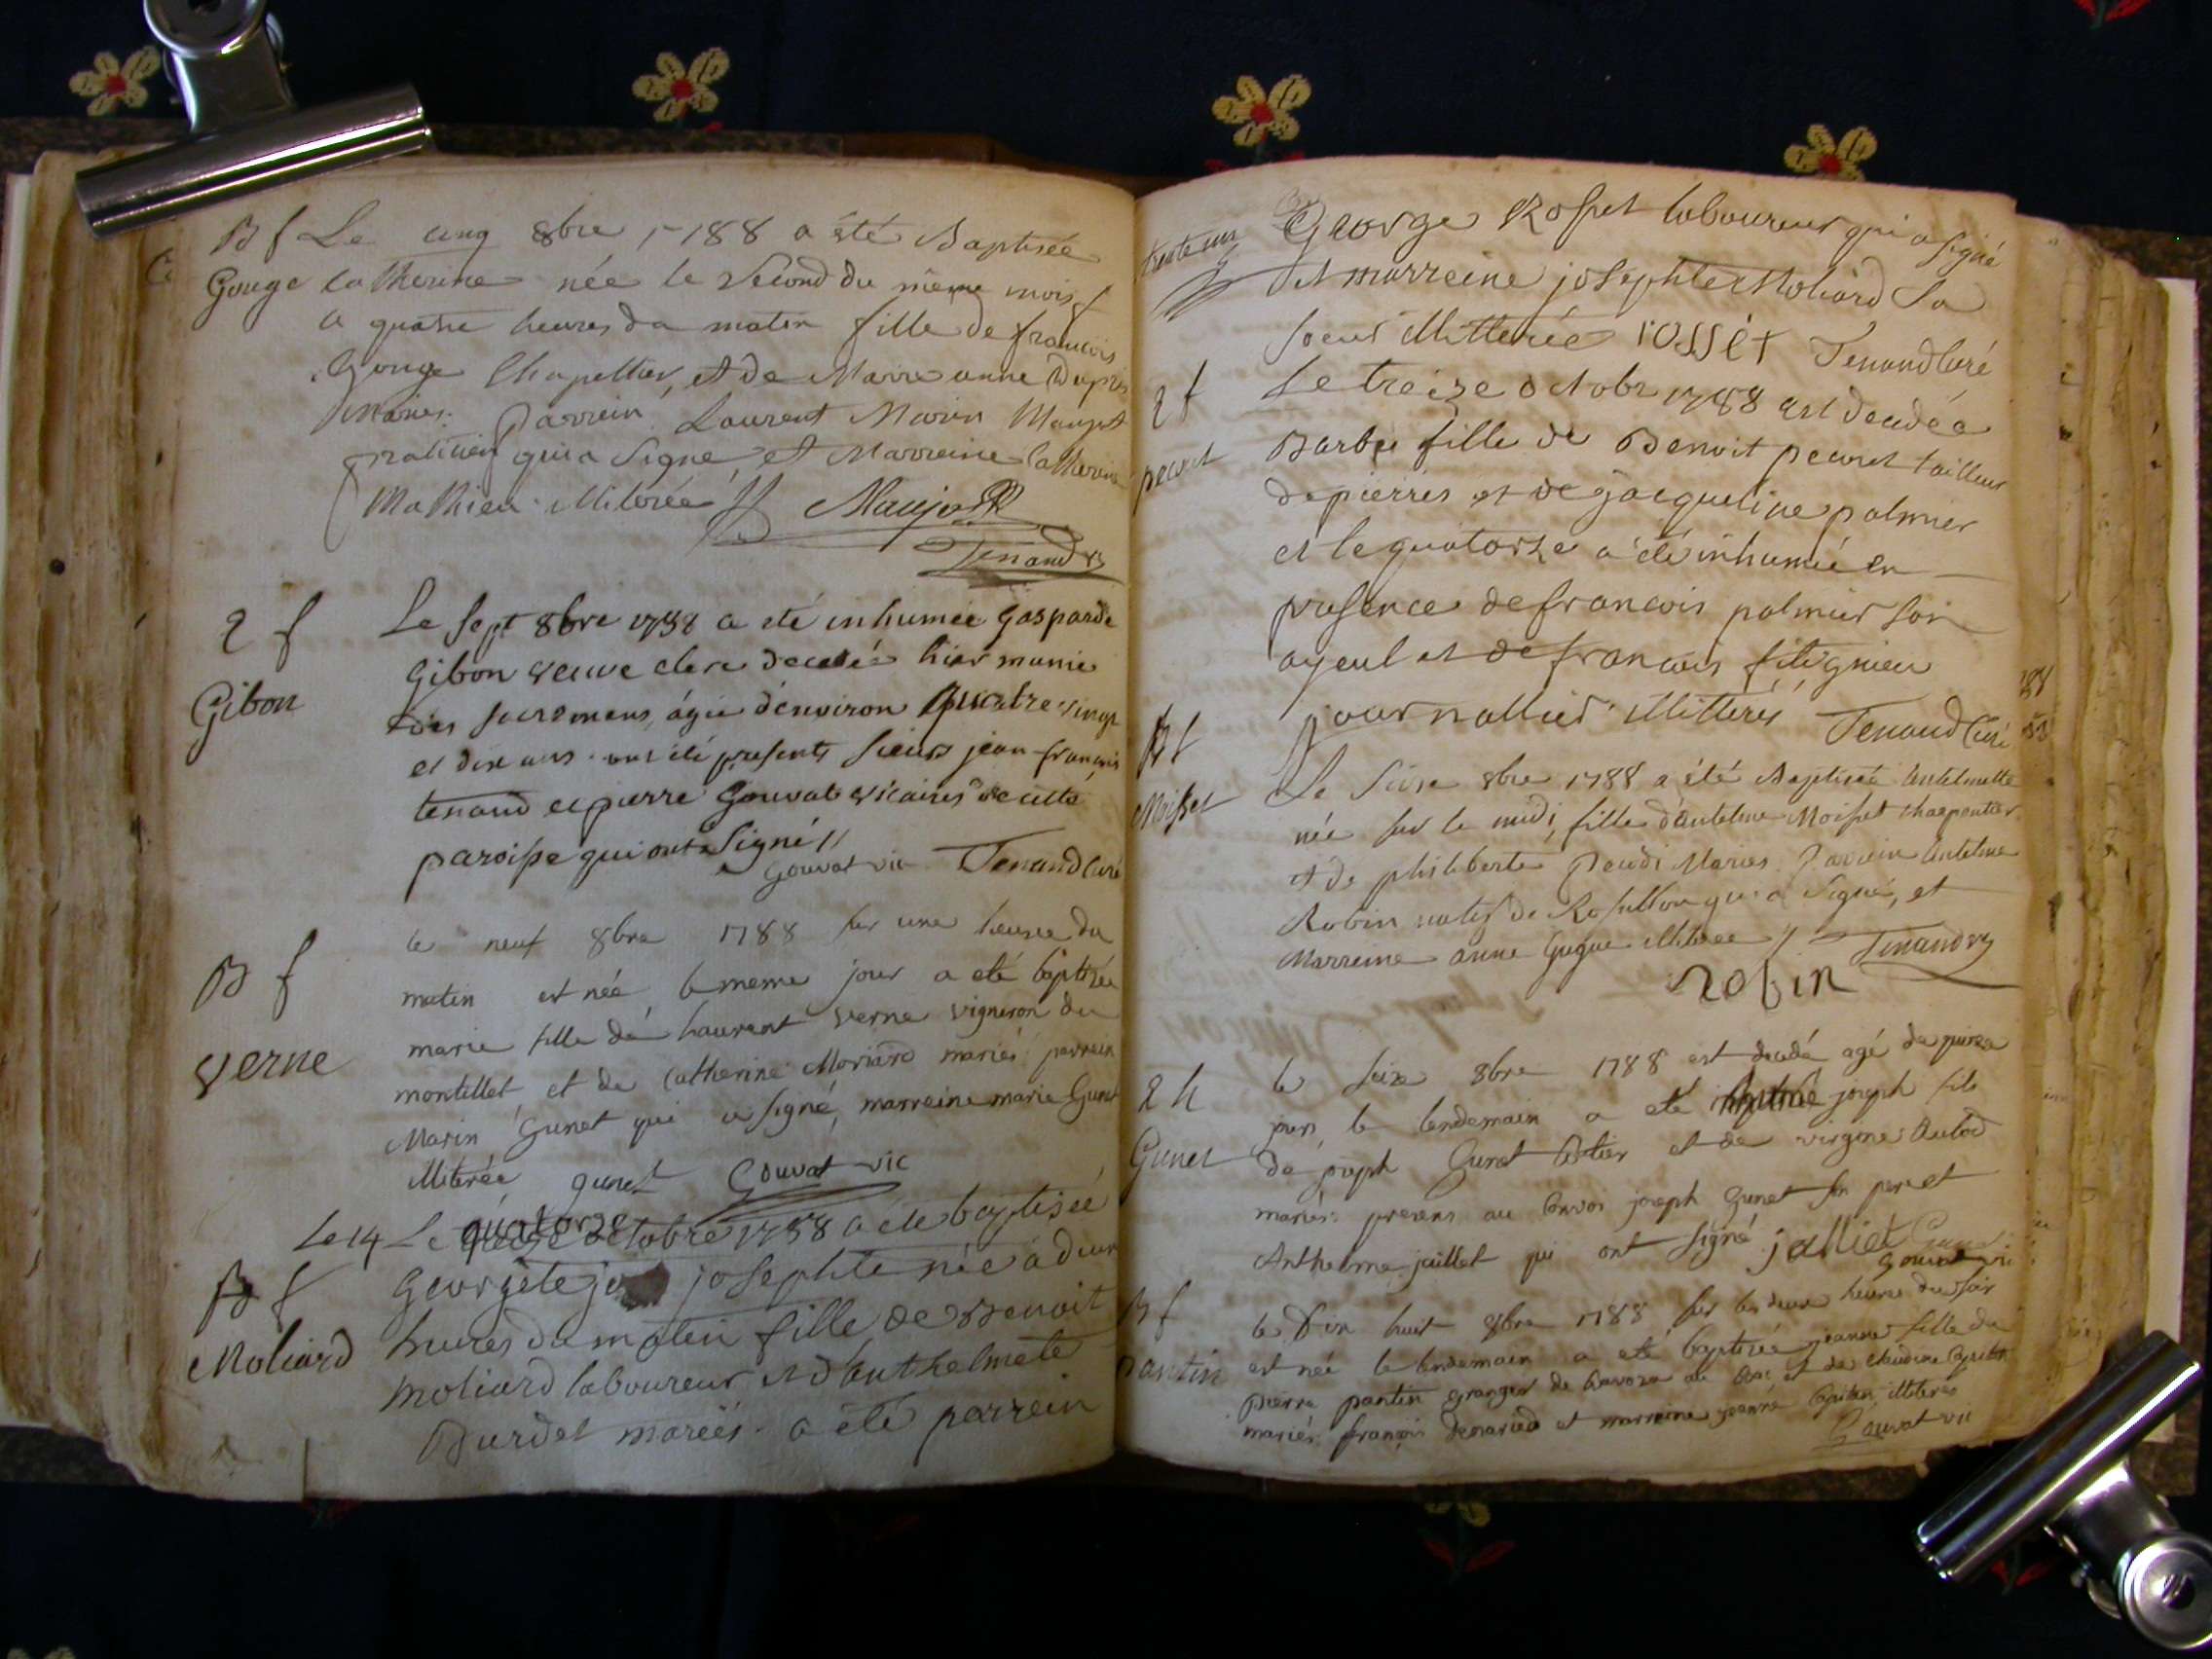 B f Le cinq 8bre 1788 a été Baptisée
Gouge Catherine née le second du même mois
a quatre heures du matin fille de francois
Gouge Chapellier, et de Marie anne Dupris
Mariés. Parrein Laurent Marin Maujot
praticien qui a Signé, et Marreine Catherine
Mathieu illiterée //
Tenand
2 f
Gibon
Le Sept 8bre 1788 a eté inhumée gasparde
Gibon veuve clerc decedée hier munie
des sacremens, agée d'environ Quatre vingt
et dix ans. ont été presents sieurs jean-francois
tenand et pierre Gouvat vicaires de cette
paroisse qui ont Signé //
Gouvat vic Tenand Curé
B f
verne
le neuf 8bre 1788 sur une heure du
matin est née, le meme jour a eté baptisée
marie fille de Laurent verne vigneron du
montellet et de Catherine Moriard mariés parrein
Marin Gunet qui a signé, marreine marie Gunet
illiterée gunet Gouvat vic
Le 14 Le quatorze octobre 1788 a été baptisée
B f
Moliard
Georgete josephte née a deux
heures du matin fille de Benoit
moliard laboureur et d'anthelmete
Burdet mariés. a été parrein
trente un
George Rosset laboureur qui a signé
et marreine josephte Moliard Sa
soeur illitterée rosset Tenand Curé
2 f
pecout
Le treize octobr 1788 est decedée
Barbe fille de Benoit tailleur
de pierres et de jacqueline palmier
et le quatorze a été inhumée en
presence de francois palmier son
ayeul et de francois
journallier illitterés Tenand Curé
B f
Moisset
Le Seize 8bre 1788 a été Baptisée Antelmette
née sur le midi, fille d'antelme Moisset charpentier
et de philiberte Mariés. Parrein Antelme
Robin natif de Rossillon qui a Signé, et
Marreine anne Gugue illiterée // Tenand
Robin
2 h
Gunet
le seize 8bre 1788 est decedé agé de quinze
jours, le lendemain a eté joseph fils
de joseph Gunet et de virginie
mariés: presens au convoi joseph Gunet son pere et
Anthelme jaillet qui ont signé jalliet
Gouvat vic
B f
Pantin
le Dix huit 8bre 1788 sur les deux heures du soir
est née le lendemain a eté baptisée jeanne fille de
pierre pantin granger de au et de Claudine
mariés: françois et marreine jeanne illiterés
Gouvat vic